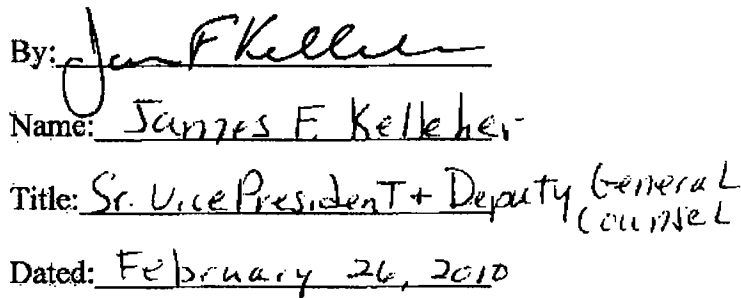 By: James F Kelleher
Name: James F Kelleher
Title: Sr. Vice President + Deputy General
Counsel
Dated: February 26, 2010